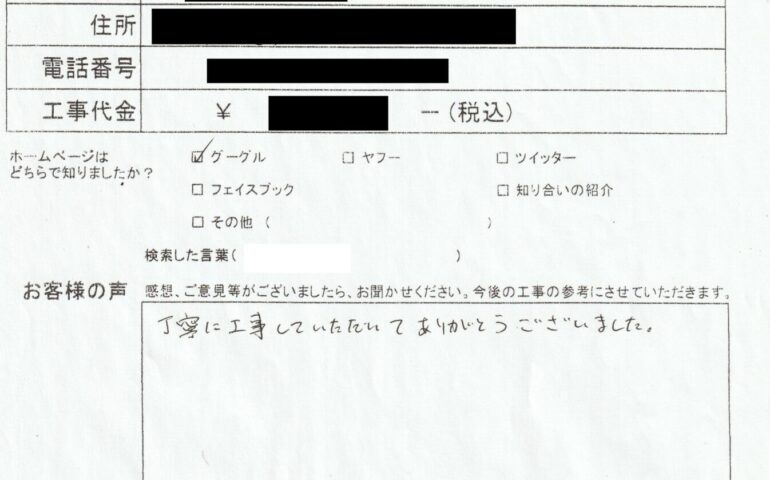 住所
電話番号
工事代金 ¥ ー(税込)
ホームページは
どちらで知りましたか?
☑ グーグル □ ヤフー □ ツイッター
□ フェイスブック □ 知り合いの紹介
□ その他 ( )
検索した言葉( )
お客様の声 感想、ご意見等がございましたら、お聞かせください。今後の工事の参考にさせていただきます。
丁寧に工事していただいてありがとうございました。